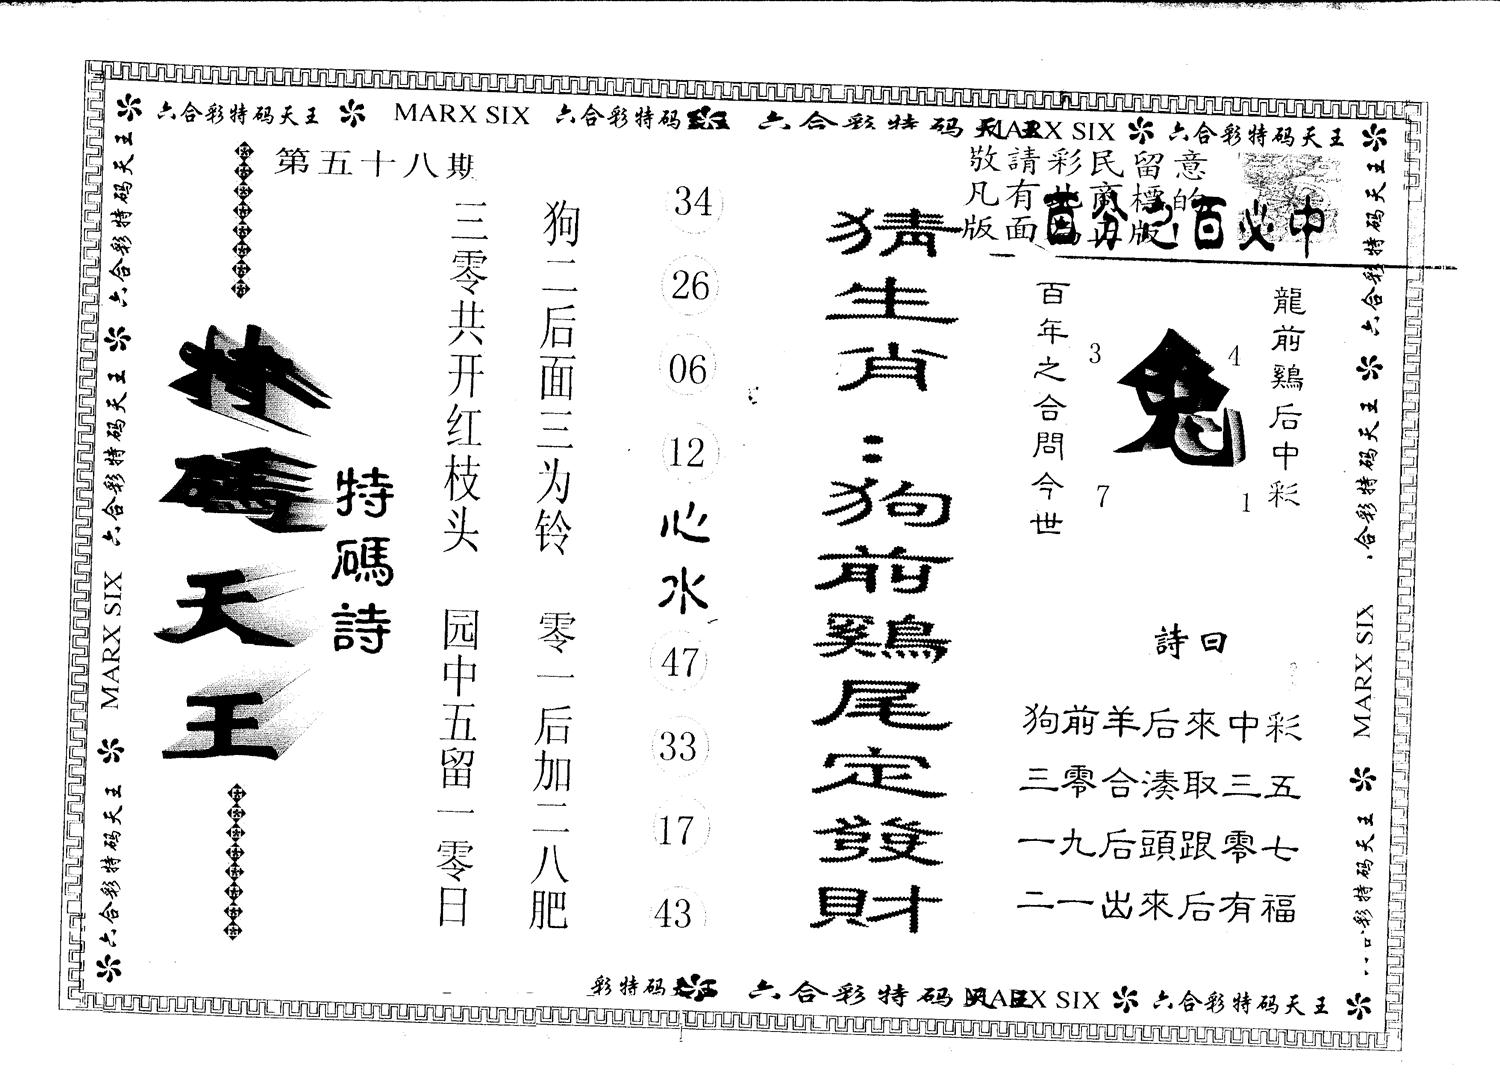 六合彩特码天王 MARX SIX 六合彩特码 六合彩特码天王 MARX SIX 六合彩特码天王
第五十八期
敬請彩民留意
凡有此商標的
版面為正版
百分之百必中
特碼天王
特碼詩
三零共开红枝头 园中五留一零日
狗二后面三为铃 零一后加二八肥
34
26
06
12
心水
47
33
17
43
猜生肖:狗前鷄尾定發財
百年之合問今世
3
4
兔
7
1
龍前鷄后中彩
詩曰
狗前羊后來中彩
三零合湊取三五
一九后頭跟零七
二一出來后有福
六合彩特码天王
六合彩特码天王
MARX SIX
六合彩特码天王
六合彩特码天王
六合彩特码天王
合彩特码天王
MARX SIX
彩特码天王
彩特码天王 六合彩特码天王 MARX SIX 六合彩特码天王